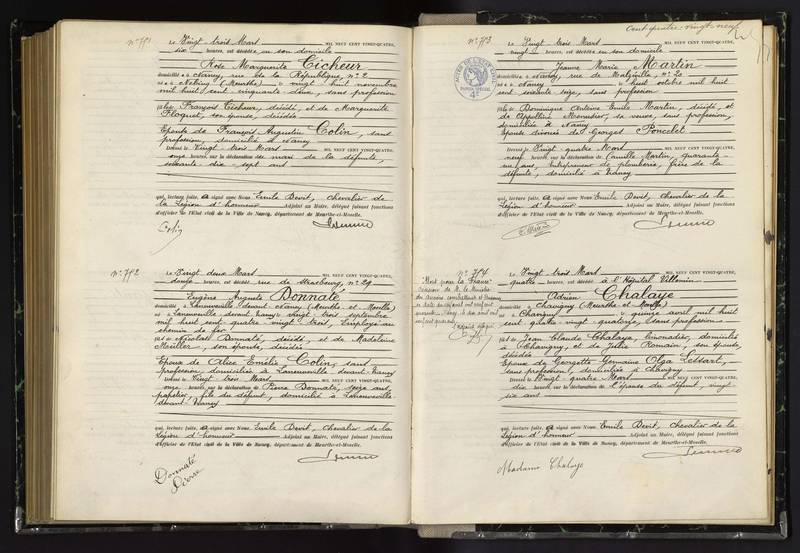 N° 751
Le Vingt-trois Mars MIL NEUF CENT VINGT-QUATRE,
six heures, est décédée en son domicile
Rose Marguerite Cicheur
domiciliée à Nancy, rue de la République, n° 2
née à Nébing (Meurthe) le vingt-huit novembre
mil huit cent cinquante deux, sans profession
fille de François Cicheur, décédé, et de Marguerite
Floquet, son épouse, décédée
Epouse de François Augustin Colin, sans
profession, domicilié à Nancy
Dressé le Vingt-trois Mars MIL NEUF CENT VINGT-QUATRE,
onze heures, sur la déclaration du mari de la défunte,
soixante-dix-sept ans
qui, lecture faite, a signé avec Nous Emile Devit, chevalier de
la Légion d'honneur Adjoint au Maire, délégué faisant fonctions
d'officier de l'Etat civil de la Ville de Nancy, département de Meurthe-et-Moselle.
Colin
N° 752
Le Vingt deux Mars MIL NEUF CENT VINGT-QUATRE,
douze heures, est décédé rue de Strasbourg, n° 29
Eugène Auguste Donnaté
domicilié à Laneuveville-devant-Nancy (Meurthe et Moselle)
né à Laneuveville devant Nancy le vingt trois septembre
mil huit cent quatre vingt trois, Employé au
chemin de fer
fils de Nicolas Donnaté, décédé, et de Madeleine
Meüller, son épouse, décédée
Epoux de Alice Emélie Colin, sans
profession, domiciliée à Laneuveville-devant-Nancy
Dressé le Vingt-trois Mars MIL NEUF CENT VINGT-QUATRE,
onze heures, sur la déclaration de Pierre Donnaté, seize ans,
papetier, fils du défunt, domicilié à Laneuveville
devant Nancy
qui, lecture faite, a signé avec Nous Emile Devit, Chevalier de la
Légion d'honneur Adjoint au Maire, délégué faisant fonctions
d'officier de l'Etat civil de la Ville de Nancy, département de Meurthe-et-Moselle.
Donnaté
Pierre
Cent quatre-vingt-neuf
N° 753
Le Vingt-trois Mars MIL NEUF CENT VINGT-QUATRE,
vingt heures, est décédée en son domicile
Jeanne Marie Martin
domiciliée à Nancy, rue de Malzéville, n° 20
née à Nancy le huit octobre mil huit
cent soixante seize, sans profession
fille de Dominique Antoine Emile Martin, décédé, et
de Appolline Mounier, sa veuve, sans profession,
domiciliée à Nancy
Epouse divorcée de Georges Poncelet
Dressé le Vingt-quatre Mars MIL NEUF CENT VINGT-QUATRE,
neuf heures, sur la déclaration de Camille Martin, quarante-
un ans, entrepreneur de plomberie, frère de la
défunte, domicilié à Nancy
qui, lecture faite, a signé avec Nous Emile Devit, Chevalier de la
Légion d'honneur Adjoint au Maire, délégué faisant fonctions
d'officier de l'Etat civil de la Ville de Nancy, département de Meurthe-et-Moselle.
N° 754
"Mort pour la France"
Le Vingt-trois Mars MIL NEUF CENT VINGT-QUATRE,
quatre heures, est décédé à l'Hôpital Villemin
Adrien Chalaye
domicilié à Chavigny (Meurthe et Moselle)
né à Chavigny le quinze avril mil huit
cent quatre vingt quatorze, sans profession
fils de Jean Claude Chalaye, limonadier, domicilié
à Chavigny, et de Julie Romain, son épouse,
décédée
Epoux de Georgette Germaine Olga Lessart,
sans profession, domiciliée à Chavigny
Dressé le Vingt-quatre Mars MIL NEUF CENT VINGT-QUATRE,
dix heures, sur la déclaration de l'épouse du défunt, vingt-
six ans
qui, lecture faite, a signé avec Nous Emile Devit, chevalier de la
Légion d'honneur Adjoint au Maire, délégué faisant fonctions
d'officier de l'Etat civil de la Ville de Nancy, département de Meurthe-et-Moselle.
Madame Chalaye